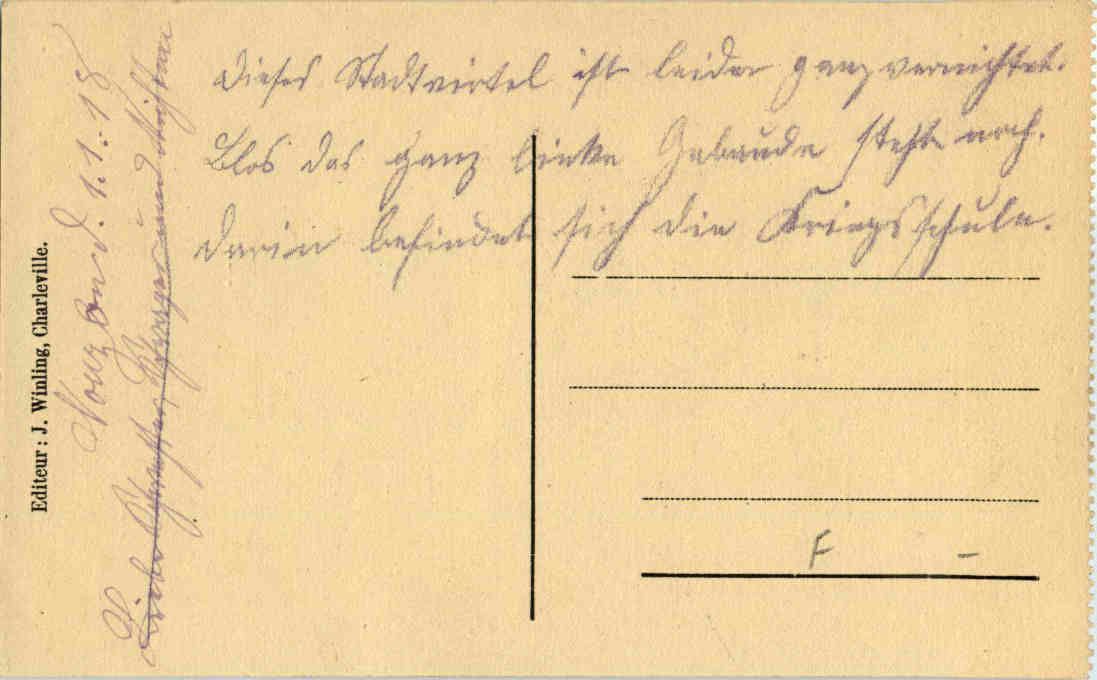 Dieses Stadtviertel ist leider ganz vernichtet.
Blos das ganz linke Gebäude steht noch.
Darin befindet sich die Kriegsschule.
Nouzon d. 1.1.18
Liebe und
Editeur : J. Winling, Charleville.
F –